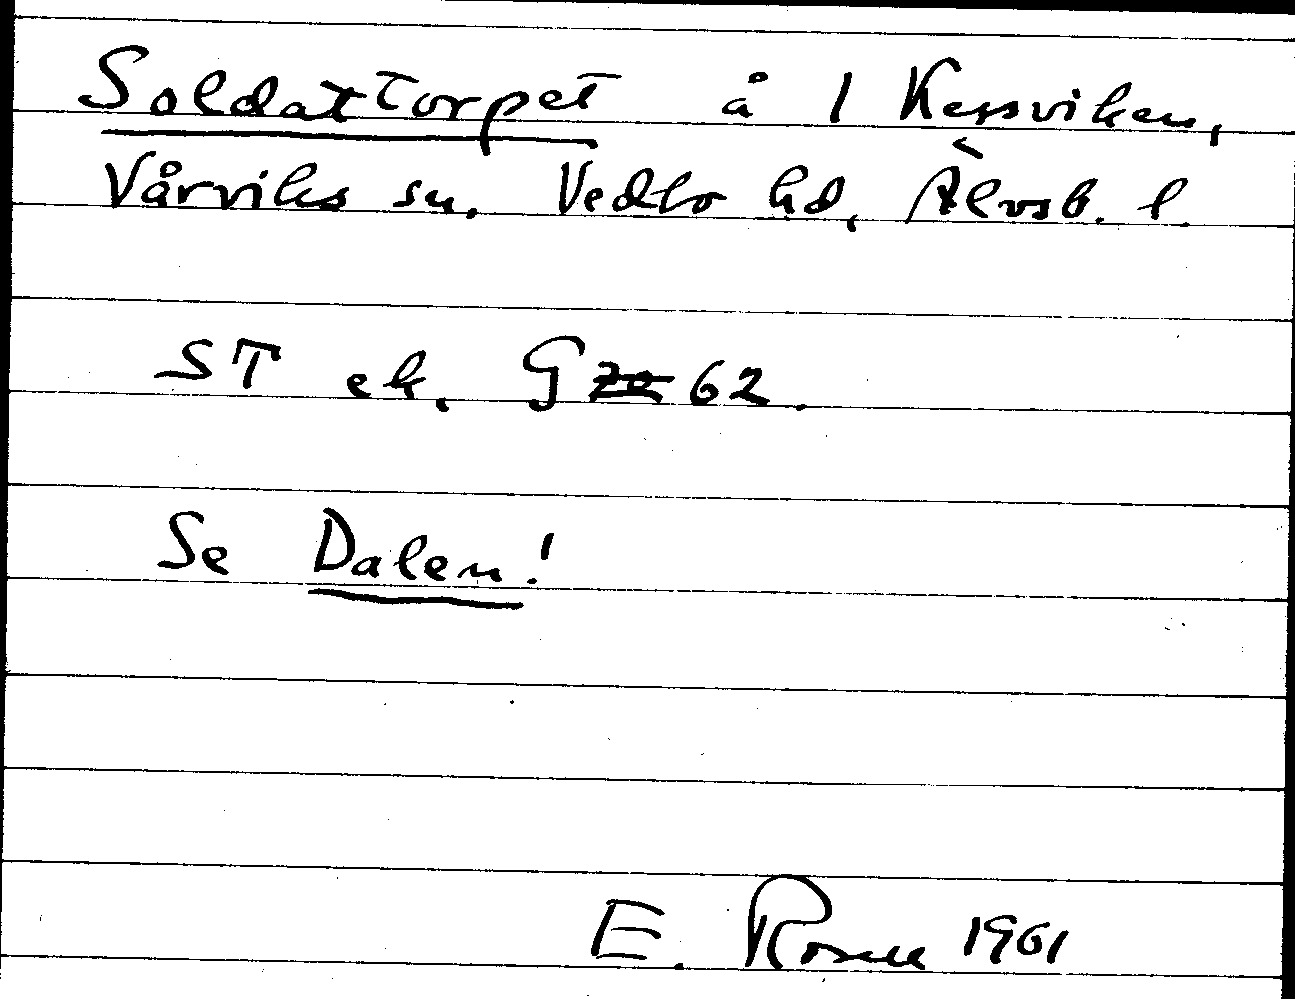 Soldattorpet å 1 Kesviken,
Vårviks sn. Vedbo hd, Älvsb. l.
ST ek. G 62.
Se Dalen!
E. 1961